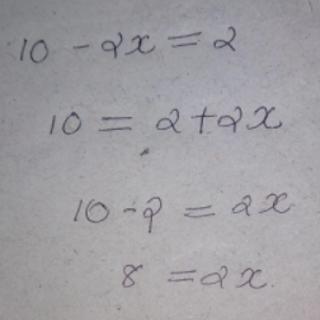 10 - 2x = 2
10 = 2+2x
10-2 = 2x
8 = 2x